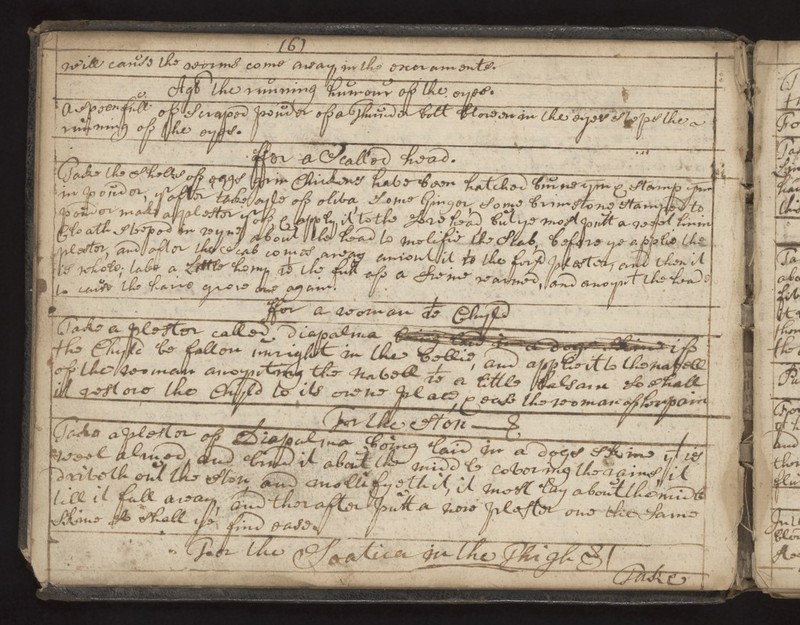 (6)
will cause the worms come away in the excraments.
Agst the running humour of the eyes.
A spoonfull of scraped pouder of a thunder bolt blowen in the eyes stops the
running of the eyes.
ffor a Scalled head.
Take the shells of eggs Chickens have been hatched burne ym & stamp ym
in pouder, after take oyle of oliva some Ginger some brimstone stamped to
pouder make a plester & apply it to the sore head but ye most putt a
Cloath steeped in wyne about the head to molifie the Scab, before ye applie the
plester, and after the Scab comes away anoint it to the first plester, and then it
is whole, take a Little hony to the full of a warmed, and anoynt the head
to cause the haire grow one again.
ffor a woman wt Chyld
Take a plester called Diapalma if
the Chyld be fallen unright in the bellie, and applie it to the navell
of the woman anoynting the navell wt a little balsam so shall
it restore the Chyld to its owne place, & ease the woman of her pain
For the Ston
Take a plester of Diapalma being laid in a dogs skine yt is
weel alined, and bind it about the midle covering the rains, it
driveth out the Ston and mollifyeth it, it most lay about the midle
till it fall away, and therafter putt a new plester one the same
skine so shall ye find ease.
For the Sciatica in the Thigh &
Take